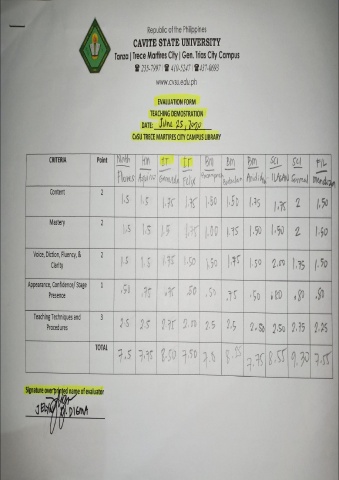 Republic of the Philippines
CAVITE STATE UNIVERSITY
Tanza | Trece Martires City | Gen. Trias City Campus
☎ 235-7997 | ☎ 410-5247 | ☎ 437-0693
www.cvsu.edu.ph
EVALUATION FORM
TEACHING DEMOSTRATION
DATE: June 25, 2020
CvSU TRECE MARTIRES CITY CAMPUS LIBRARY
CRITERIA Point Hm IT IT Bm Bm Bm
Content 2 1.5 1.5 1.75 1.75 1.50 1.50 1.75 1.75 2 1.50
Mastery 2 1.5 1.5 1.5 1.75 1.00 1.75 1.50 1.50 2 1.50
Voice, Diction, Fluency, & Clarity 2 1.5 1.5 1.75 1.50 1.50 1.75 1.50 2.00 1.75 1.50
Appearance, Confidence/ Stage Presence 1 .50 .75 .75 .50 .50 .75 .50 .80 .80 .50
Teaching Techniques and Procedures 3 2.5 2.5 2.75 2.00 2.5 2.5 2.50 2.50 2.75 2.25
TOTAL 7.5 7.75 8.50 7.50 8.25 7.75 8.55 9.30
Signature over printed name of evaluator
DIGMA